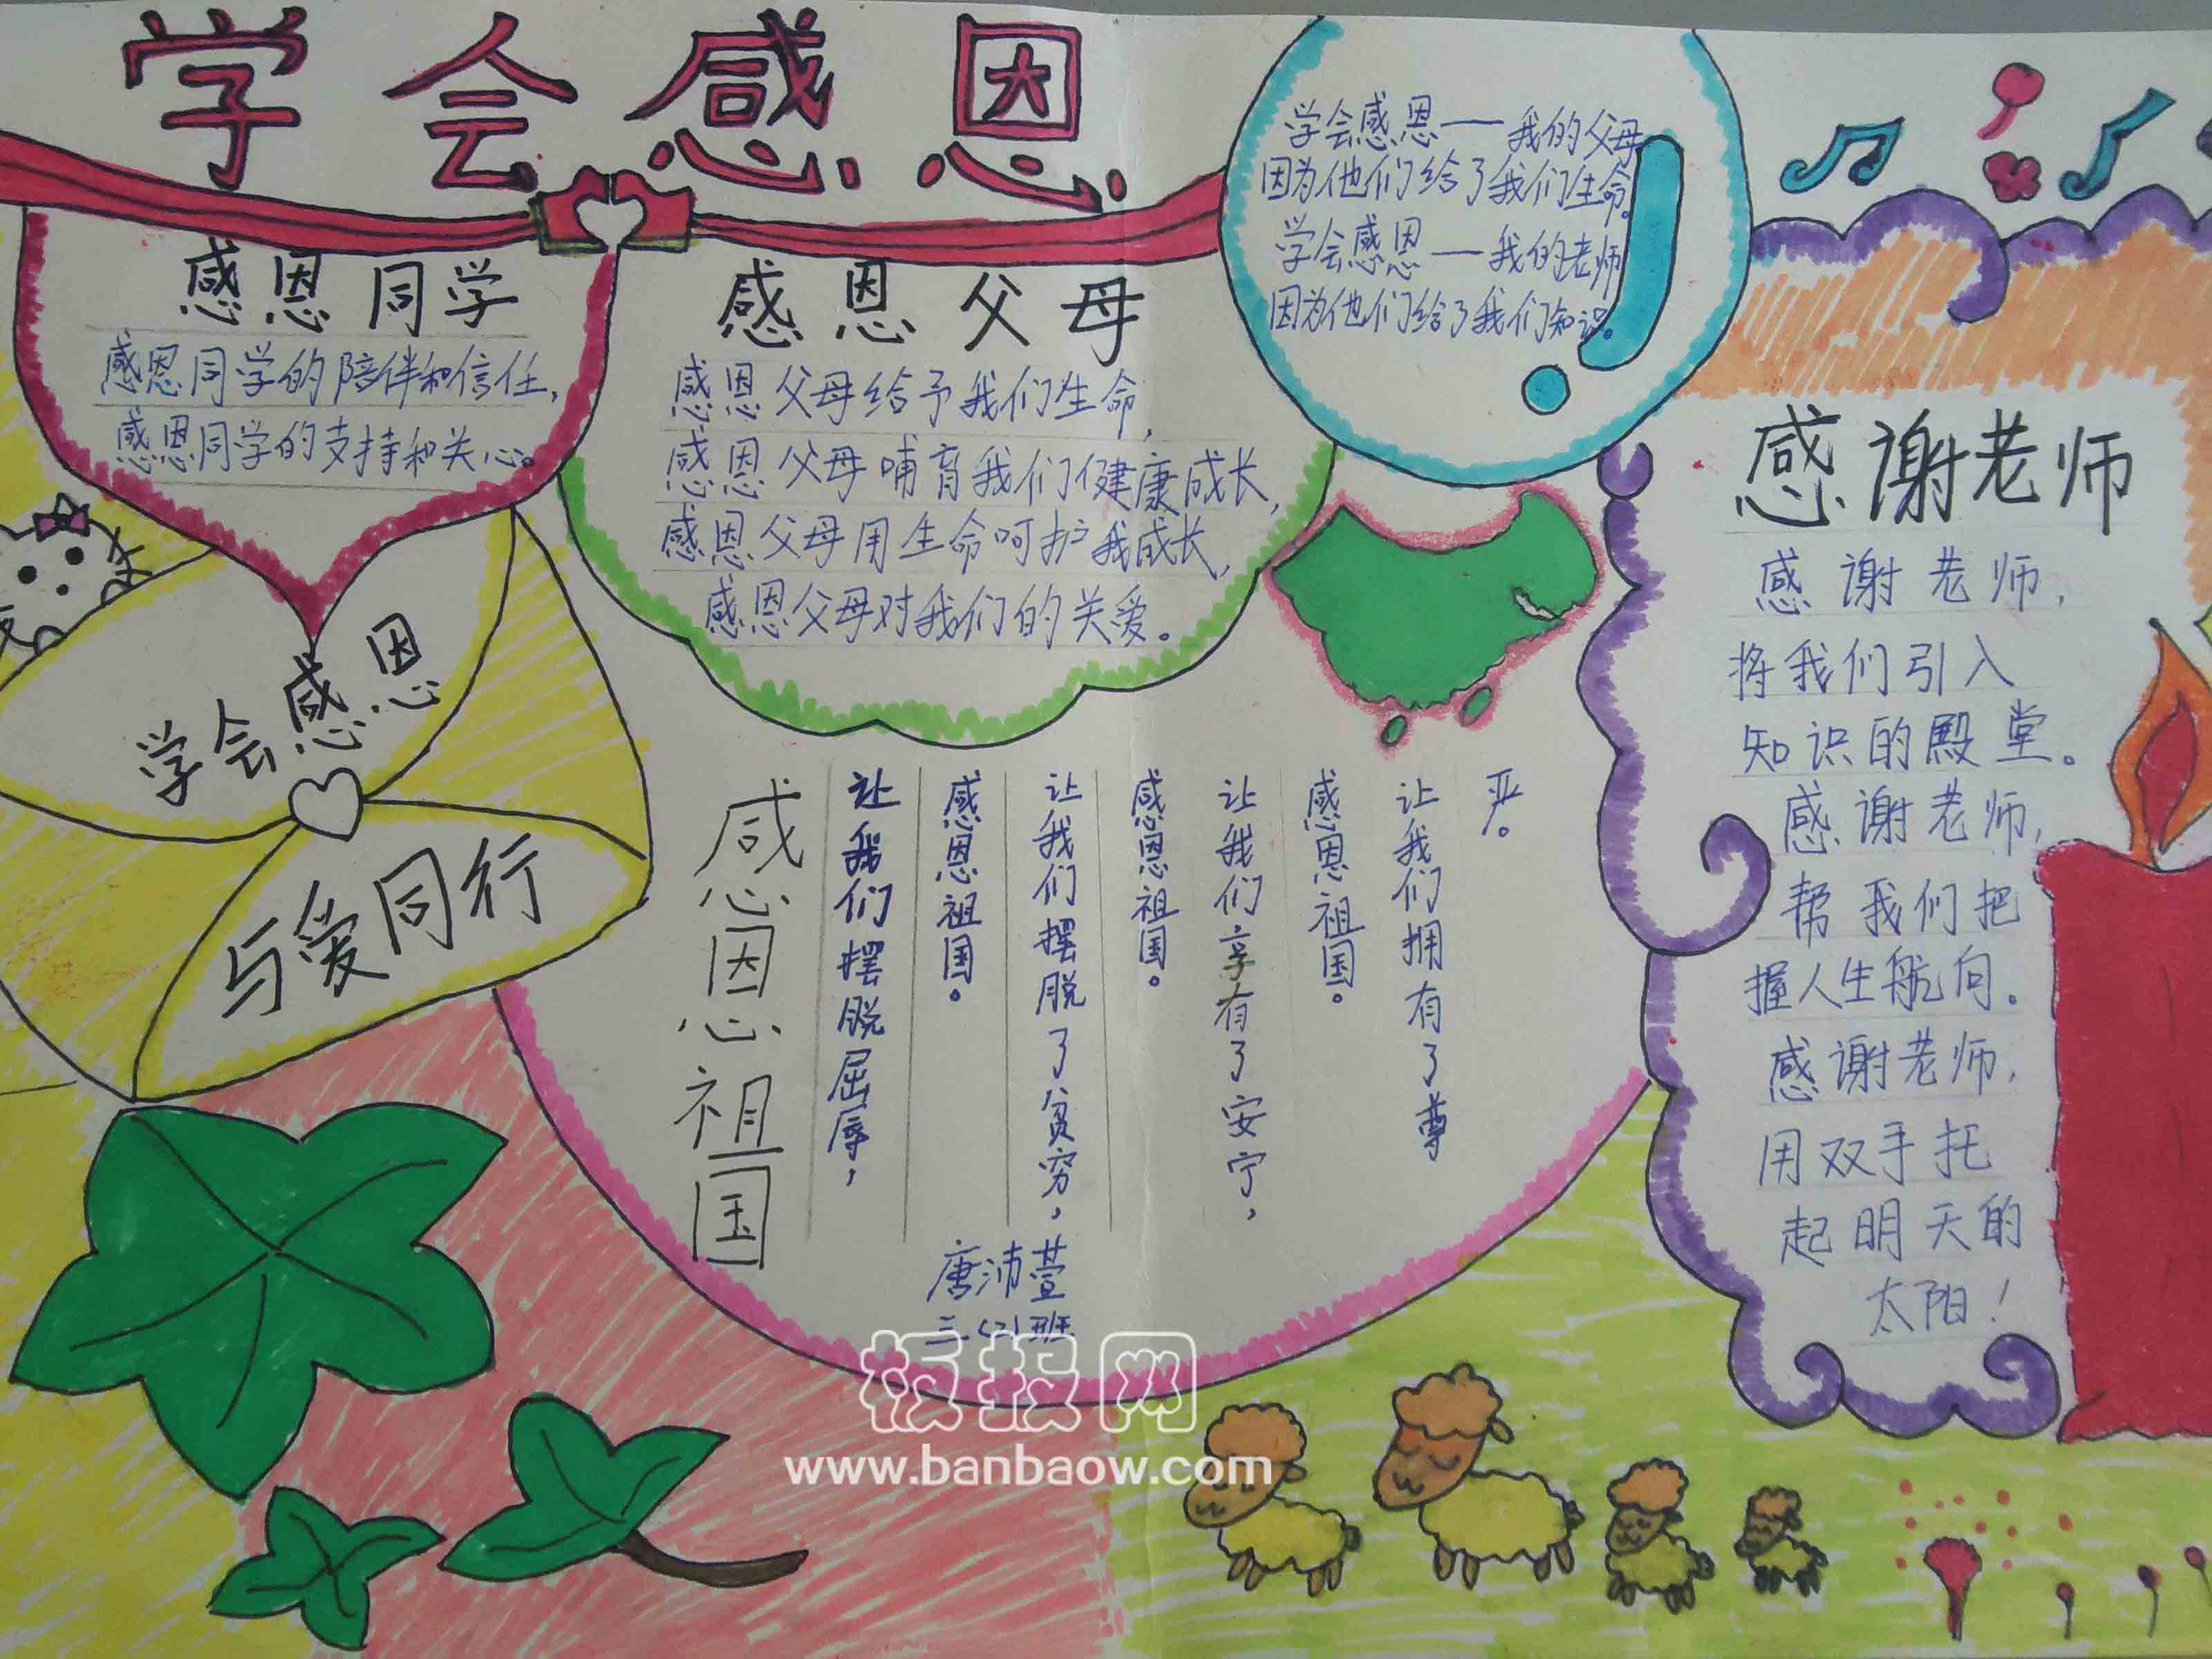 学会感恩
感恩同学
感恩同学的陪伴和信任,
感恩同学的支持和关心。
感恩父母
感恩父母给予我们生命,
感恩父母哺育我们健康成长,
感恩父母用生命呵护我成长,
感恩父母对我们的关爱。
学会感恩——我的父母
因为他们给了我们生命。
学会感恩——我的老师
因为他们给了我们知识。
感谢老师
感谢老师,
将我们引入
知识的殿堂。
感谢老师,
帮我们把
握人生航向。
感谢老师,
用双手托
起明天的
太阳!
学会感恩
与爱同行
感恩祖国
让我们摆脱屈辱,
感恩祖国。
让我们摆脱了贫穷,
感恩祖国。
让我们享有了安宁,
感恩祖国。
让我们拥有了尊
严。
唐沛萱
班
板报网
www.banbaow.com